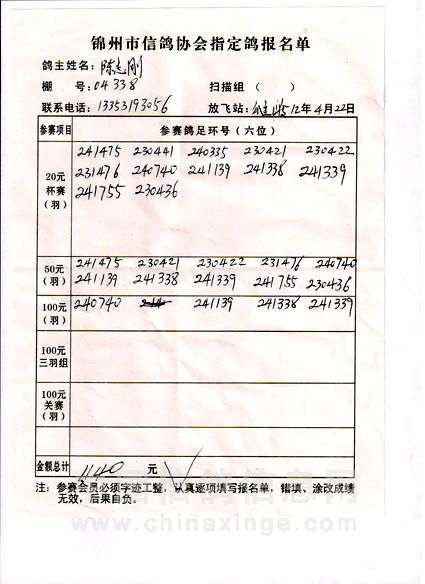 锦州市信鸽协会指定鸽报名单
鸽主姓名：陈志刚
棚 号：04338 扫描组（ ）
联系电话：13353193056 放飞站： 12年4月22日
参赛项目 参赛鸽足环号（六位）
20元杯赛（羽） 241475 230441 240335 230421 230422
231476 240740 241139 241338 241339
241755 230436
50元（羽） 241475 230421 230422 231476 240740
241139 241338 241339 241755 230436
100元（羽） 240740 241139 241338 241339
100元三羽组
100元关赛（羽）
金额总计 1140 元
注：参赛会员必须字迹工整，认真逐项填写报名单，错填、涂改成绩
无效，后果自负。
www.chinaxinge.com